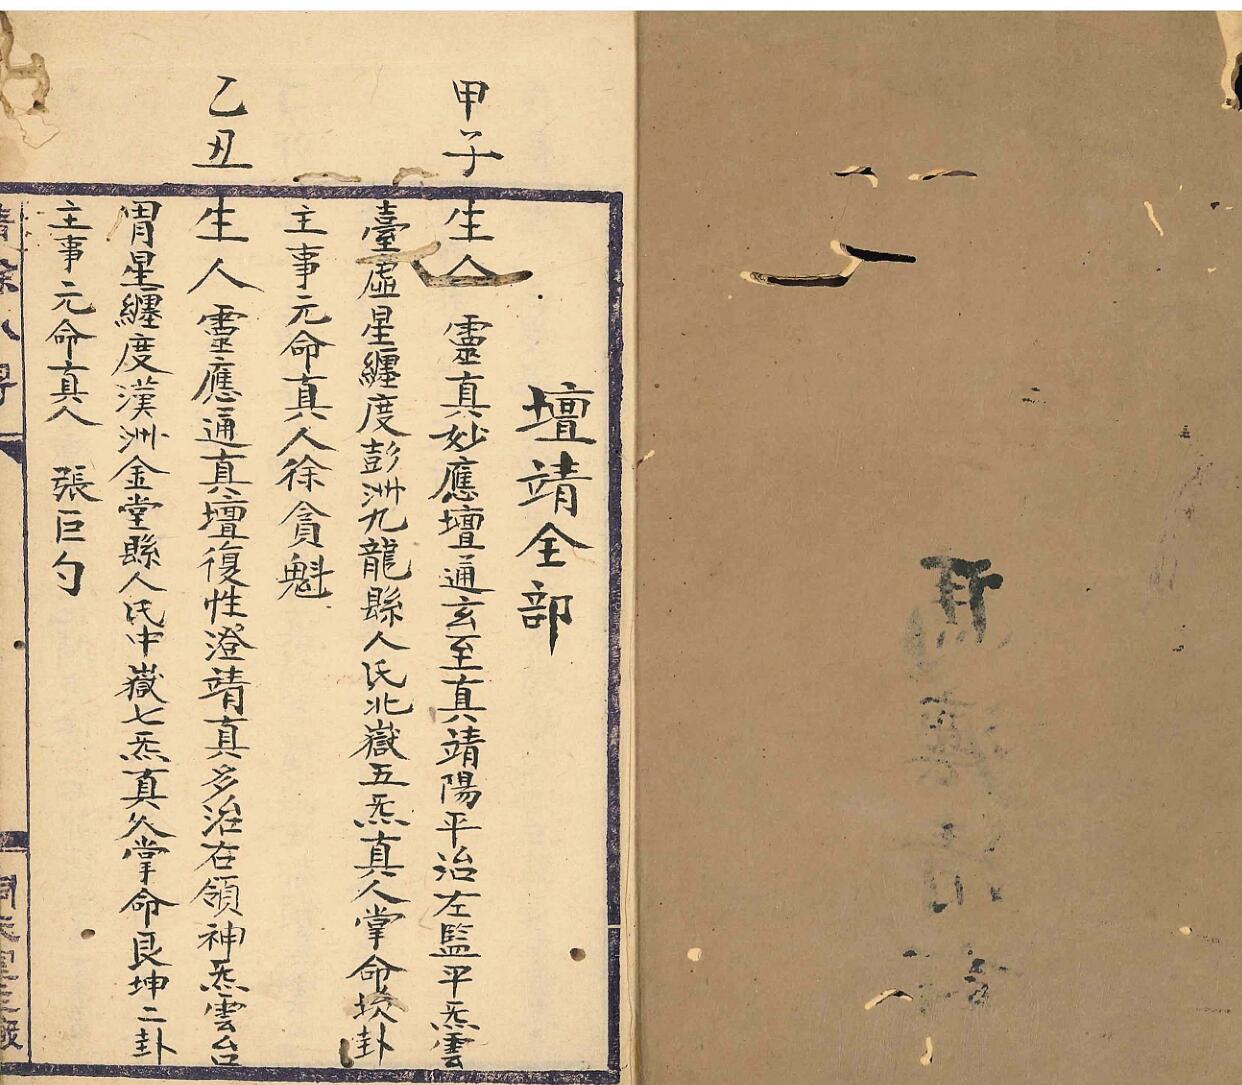 壇靖全部
甲子生人 靈真妙應壇通玄至真靖陽平治左監平炁雲
臺虛星纏度彭洲九龍縣人氏北嶽五炁真人掌命坎卦
主事元命真人徐貪魁
乙丑生人 靈應通真壇復性澄靖真多治右領神炁雲台
胃星纏度漢洲金堂縣人氏中嶽七炁真人掌命艮坤二卦
主事元命真人 張巨勺